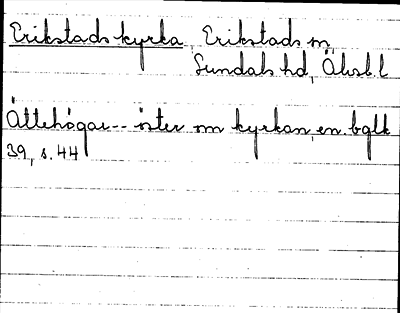 Erikstads kyrka, Erikstads sn
Sundals hd, Älvsb. l
Ättehögar -- öster om kyrkan, en. bglk
39, s. 44